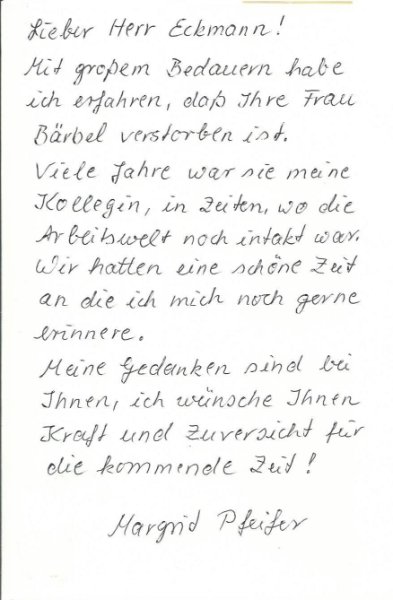 Lieber Herr Eckmann!
Mit großem Bedauern habe
ich erfahren, daß Ihre Frau
Bärbel verstorben ist.
Viele Jahre war sie meine
Kollegin, in Zeiten, wo die
Arbeitswelt noch intakt war.
Wir hatten eine schöne Zeit
an die ich mich noch gerne
erinnere.
Meine Gedanken sind bei
Ihnen, ich wünsche Ihnen
Kraft und Zuversicht für
die kommende Zeit!
Margrid Pfeifer